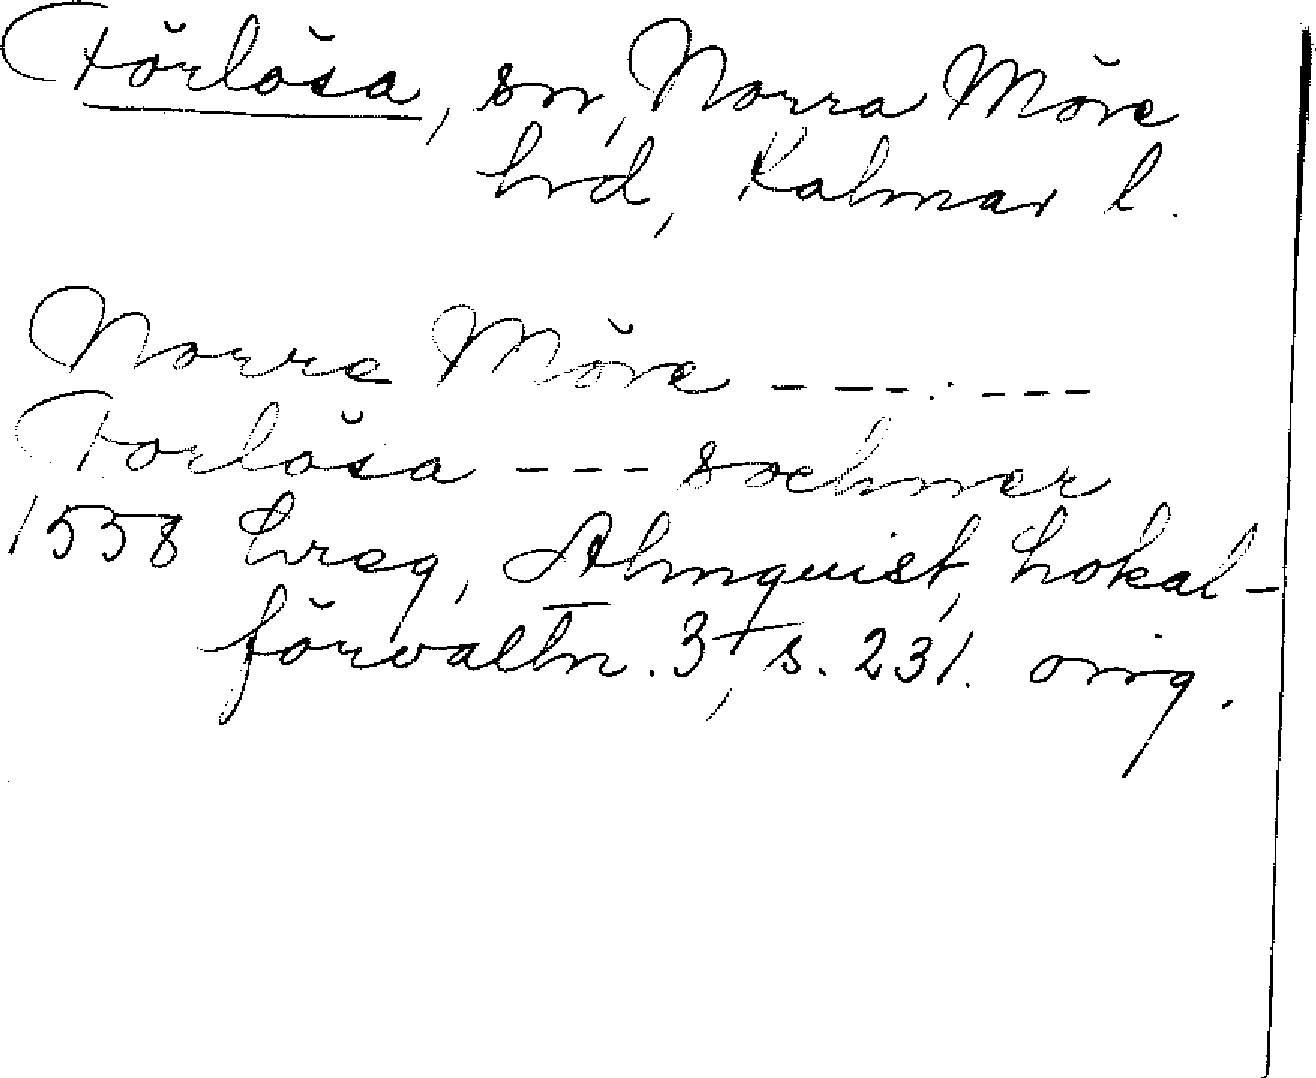 Förlösa, sn, Norra Möre
hrd, Kalmar l.
Norre Möre - - - . - - -
Forlösa - - - sochner
1558 Lreg, Almquist, Lokal-
förvaltn. 3, s. 231. orig.